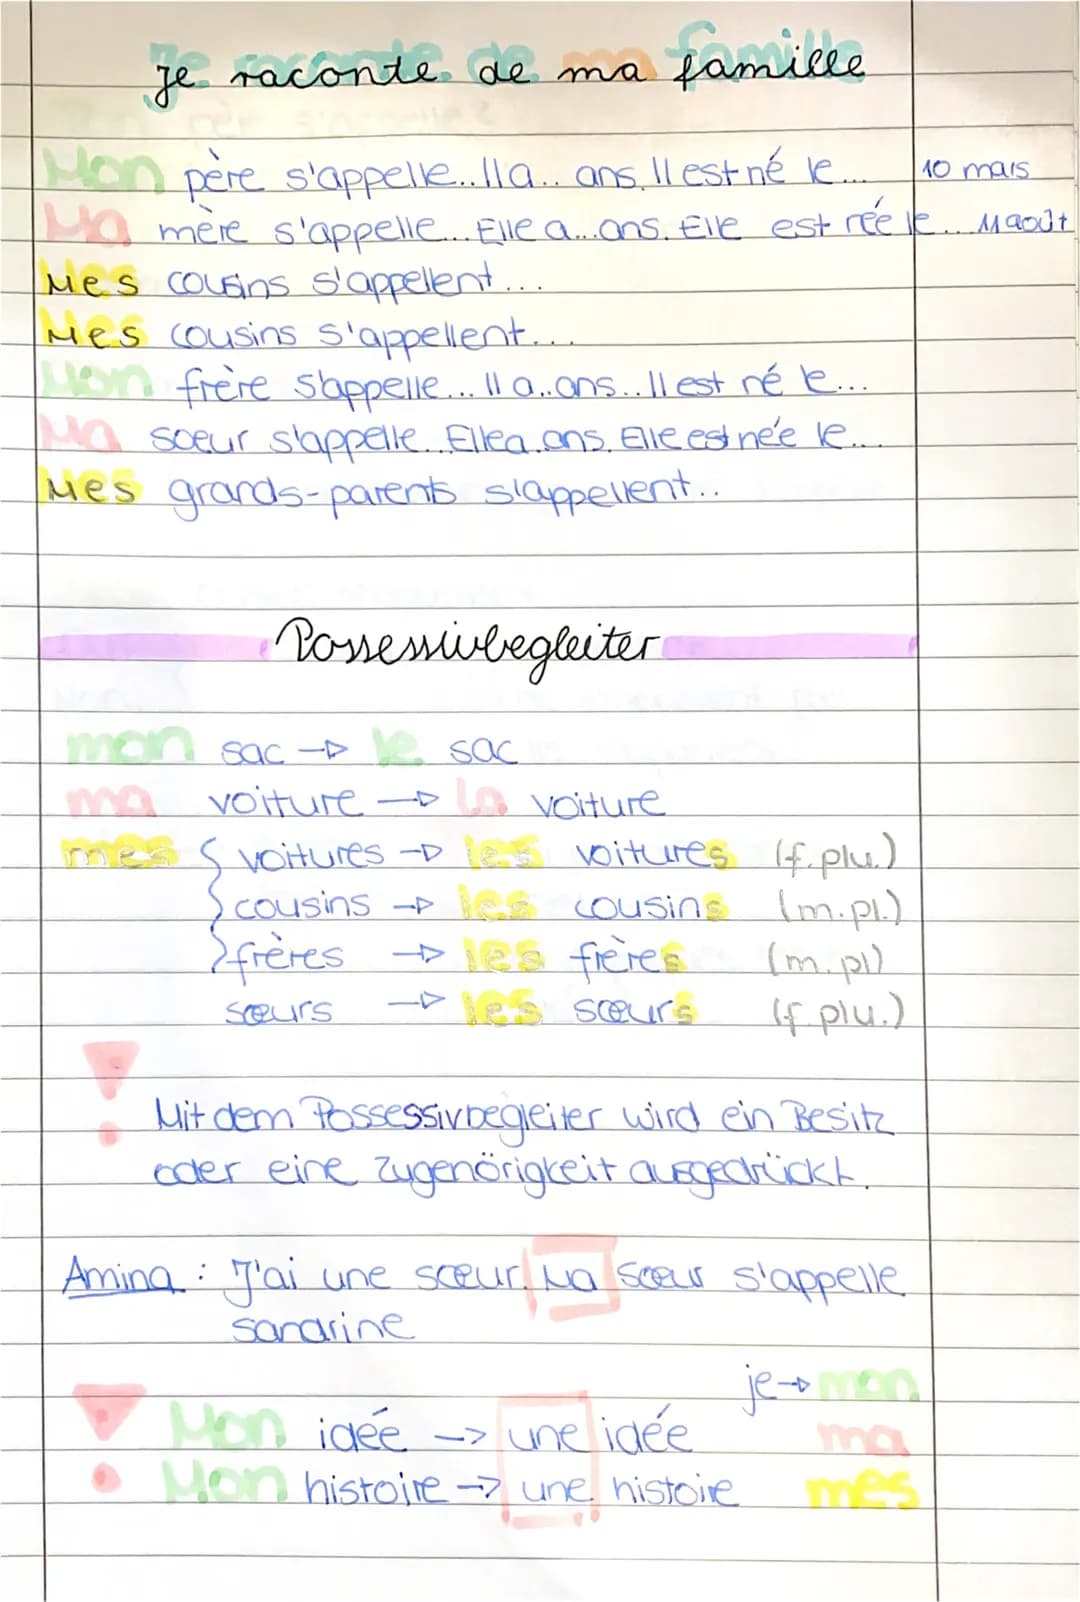 Je raconte de ma famille
Mon père s'appelle.. Il a.. ans. Il est né le... 10 mars
Ma mère s'appelle... Elle a... ans. Elle est née le... 11 août
Mes cousins s'appellent...
Mes cousins s'appellent...
Mon frère s'appelle... Il a.. ans.. Il est né le...
Ma sœur s'appelle.. Elle a ans. Elle est née le...
Mes grands-parents s'appellent..
Possessivbegleiter
mon sac → le sac
ma voiture → la voiture
mes { voitures → les voitures (f. plu.)
cousins → les cousins (m.pl.)
frères → les frères (m. pl)
sœurs → les sœurs (f. plu.)
!
Mit dem Possessivbegleiter wird ein Besitz
oder eine Zugehörigkeit ausgedrückt.
Amina : J'ai une sœur. Ma sœur s'appelle
Sandrine
je → mon
! Mon idée → une idée ma
Mon histoire → une histoire mes